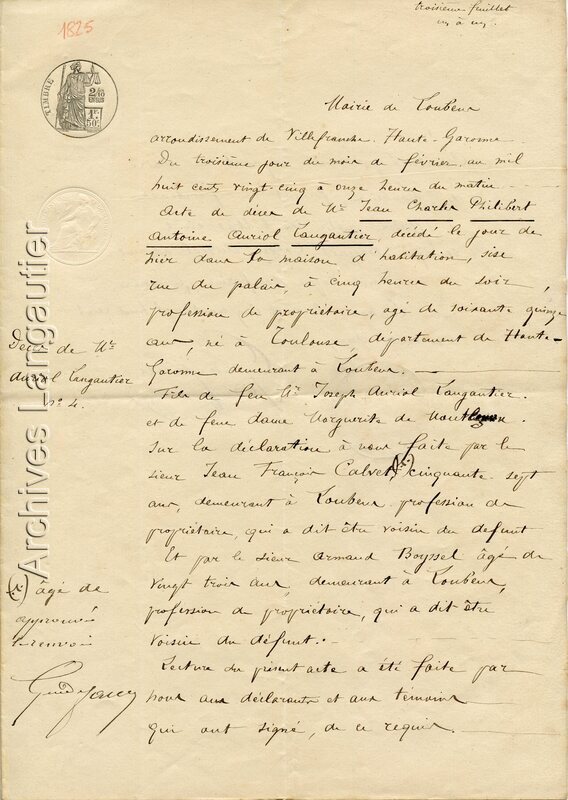 troisième feuillet
1825
TIMBRE
2/10
EN SUS
1F.
50c.
Mairie de Loubens
arrondissement de Villefranche. Haute-Garonne
Du troisième jour du mois de février, au mil
huit cent vingt-cinq à onze heures du matin
Acte de décès de Mr Jean Charles Philibert
Antoine Auriol Langautier, décédé le jour de
hier dans la maison d'habitation, sise
rue du palais, à cinq heures du soir,
profession de propriétaire, agé de soixante quinze
ans, né à Toulouse, département de Haute-
Garonne demeurant à Loubens. —
Fils de feu Mr Joseph Auriol Langautier.
et de feue dame Marguerite de
Sur la déclaration à nous faite par le
sieur Jean François Calvet, cinquante-sept
ans, demeurant à Loubens profession de
propriétaire, qui a dit être voisin du défunt
Et par le sieur Armand Boyssel âgé de
vingt trois ans, demeurant à Loubens,
profession de propriétaire, qui a dit être
voisin du défunt. -
Lecture du présent acte a été faite par
nous aux déclarants et aux témoins
qui ont signé, de ce requis.
Décès de Mr
Auriol Langautier
n° 4.
âgé de
approuvé
le renvoi
Archives Langautier